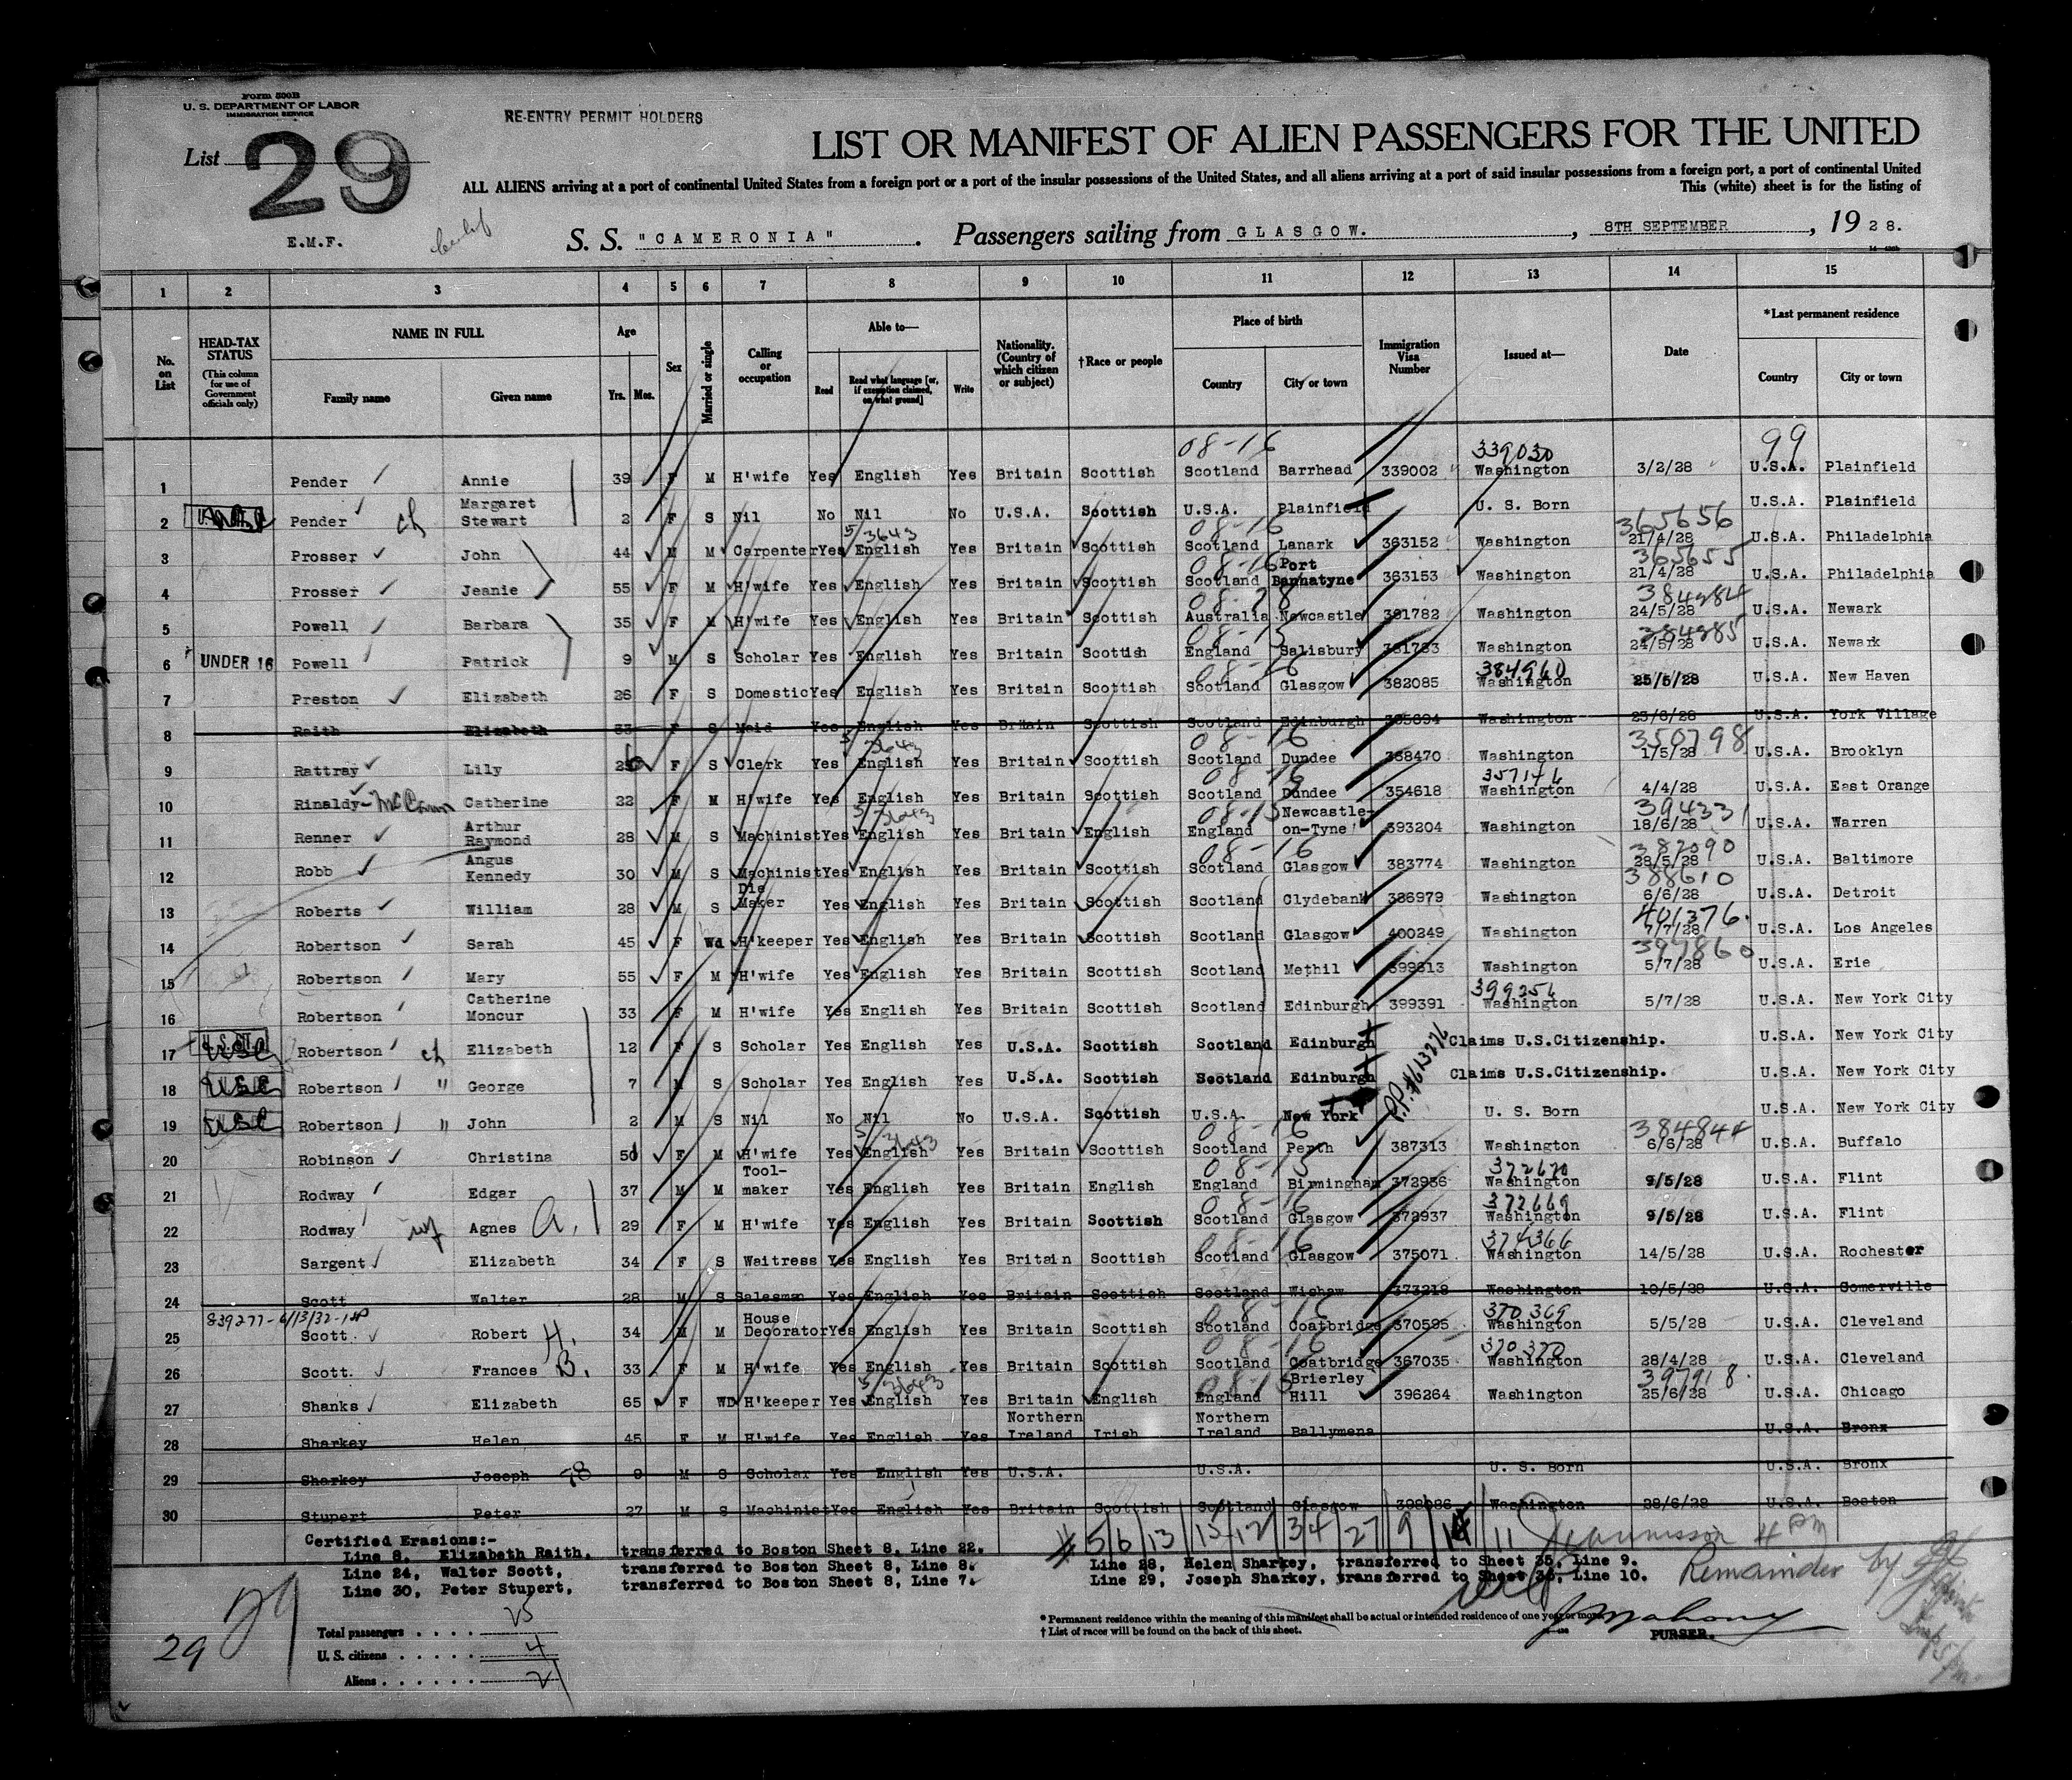 Form 500B
U. S. DEPARTMENT OF LABOR
IMMIGRATION SERVICE
RE-ENTRY PERMIT HOLDERS
List 29
LIST OR MANIFEST OF ALIEN PASSENGERS FOR THE UNITED
ALL ALIENS arriving at a port of continental United States from a foreign port or a port of the insular possessions of the United States, and all aliens arriving at a port of said insular possessions from a foreign port, a port of continental United
This (white) sheet is for the listing of
E.M.F.
S. S. "CAMERONIA". Passengers sailing from GLASGOW., 8TH SEPTEMBER, 1928.
1 2 3 4 5 6 7 8 9 10 11 12 13 14 15
No. on List HEAD-TAX STATUS (This column for use of Government officials only) NAME IN FULL Family name Given name Age Yrs. Mos. Sex Married or single Calling or occupation Able to— Read Read what language [or, if exemption claimed, on what ground] Write Nationality. (Country of which citizen or subject) †Race or people Place of birth Country City or town Immigration Visa Number Issued at— Date *Last permanent residence Country City or town
08-16 339030 99
1 Pender Annie 39 F M H'wife Yes English Yes Britain Scottish Scotland Barrhead 339002 Washington 3/2/28 U.S.A. Plainfield
2 Pender ch Margaret Stewart 2 F S Nil No Nil No U.S.A. Scottish U.S.A. Plainfield U. S. Born U.S.A. Plainfield
5/3643 08-16 365656
3 Prosser John 44 M M Carpenter Yes English Yes Britain Scottish Scotland Lanark 363152 Washington 21/4/28 U.S.A. Philadelphia
08-16 365655
4 Prosser Jeanie 55 F M H'wife Yes English Yes Britain Scottish Scotland Port Bannatyne 363153 Washington 21/4/28 U.S.A. Philadelphia
08-28 384984
5 Powell Barbara 35 F M H'wife Yes English Yes Britain Scottish Australia Newcastle 381782 Washington 24/5/28 U.S.A. Newark
08-15 384985
6 UNDER 16 Powell Patrick 9 M S Scholar Yes English Yes Britain Scottish England Salisbury 381783 Washington 24/5/28 U.S.A. Newark
08-16 384960
7 Preston Elizabeth 26 F S Domestic Yes English Yes Britain Scottish Scotland Glasgow 382085 Washington 25/5/28 U.S.A. New Haven
8 Raith Elizabeth 33 F S Maid Yes English Yes Britain Scottish Scotland Edinburgh Washington U.S.A. York Village
5/3643 08-16 350798
9 Rattray Lily F S Clerk Yes English Yes Britain Scottish Scotland Dundee 358470 Washington 1/5/28 U.S.A. Brooklyn
08-16 357146
10 Rinaldy-McCann Catherine 22 F M H'wife Yes English Yes Britain Scottish Scotland Dundee 354618 Washington 4/4/28 U.S.A. East Orange
5/3643 08-15 394331
11 Renner Arthur Raymond 28 M S Machinist Yes English Yes Britain English England Newcastle-on-Tyne 393204 Washington 18/6/28 U.S.A. Warren
08-16 382090
12 Robb Angus Kennedy 30 M S Machinist Yes English Yes Britain Scottish Scotland Glasgow 383774 Washington 28/5/28 U.S.A. Baltimore
388610
13 Roberts William 28 M S Die Maker Yes English Yes Britain Scottish Scotland Clydebank 386979 Washington 6/6/28 U.S.A. Detroit
401376.
14 Robertson Sarah 45 F Wd H'keeper Yes English Yes Britain Scottish Scotland Glasgow 400249 Washington 7/7/28 U.S.A. Los Angeles
397860
15 Robertson Mary 55 F M H'wife Yes English Yes Britain Scottish Scotland Methil 399613 Washington 5/7/28 U.S.A. Erie
399256
16 Robertson Catherine Moncur 33 F M H'wife Yes English Yes Britain Scottish Scotland Edinburgh 399391 Washington 5/7/28 U.S.A. New York City
17 Robertson ch Elizabeth 12 F S Scholar Yes English Yes U.S.A. Scottish Scotland Edinburgh Claims U.S.Citizenship. U.S.A. New York City
18 USC Robertson " George 7 M S Scholar Yes English Yes U.S.A. Scottish Scotland Edinburgh Claims U.S.Citizenship. U.S.A. New York City
19 USC Robertson " John 2 M S Nil No Nil No U.S.A. Scottish U.S.A. New York U. S. Born U.S.A. New York City
5/3643 08-16 384844
20 Robinson Christina 50 F M H'wife Yes English Yes Britain Scottish Scotland Perth 387313 Washington 6/6/28 U.S.A. Buffalo
08-15 372670
21 Rodway Edgar 37 M M Tool-maker Yes English Yes Britain English England Birmingham 372936 Washington 9/5/28 U.S.A. Flint
08-16 372669
22 Rodway wf Agnes A. 29 F M H'wife Yes English Yes Britain Scottish Scotland Glasgow 372937 Washington 9/5/28 U.S.A. Flint
08-16 374366
23 Sargent Elizabeth 34 F S Waitress Yes English Yes Britain Scottish Scotland Glasgow 375071 Washington 14/5/28 U.S.A. Rochester
24 Scott Walter 28 M S Salesman Yes English Yes Britain Scottish Scotland Wishaw 373218 Washington 10/5/28 U.S.A. Somerville
08-16 370369
25 Scott. Robert H. 34 M M House Decorator Yes English Yes Britain Scottish Scotland Coatbridge 370595 Washington 5/5/28 U.S.A. Cleveland
08-16 370370
26 Scott. Frances B. 33 F M H'wife Yes English Yes Britain Scottish Scotland Coatbridge 367035 Washington 28/4/28 U.S.A. Cleveland
5/3643 08-15 397918.
27 Shanks Elizabeth 65 F WD H'keeper Yes English Yes Britain English England Brierley Hill 396264 Washington 25/6/28 U.S.A. Chicago
28 Sharkey Helen 45 F M H'wife Yes English Yes Northern Ireland Irish Northern Ireland Ballymena U.S.A. Bronx
29 Sharkey Joseph 9 M S Scholar Yes English Yes U.S.A. U.S.A. U. S. Born U.S.A. Bronx
30 Stupert Peter 27 M S Machinist Yes English Yes Britain Scottish Scotland Glasgow 398086 Washington 28/6/28 U.S.A. Boston
Certified Erasions:-
Line 8, Elizabeth Raith, transferred to Boston Sheet 8, Line 22.
Line 24, Walter Scott, transferred to Boston Sheet 8, Line 8.
Line 30, Peter Stupert, transferred to Boston Sheet 8, Line 7.
Line 28, Helen Sharkey, transferred to Sheet 35, Line 9.
Line 29, Joseph Sharkey, transferred to Sheet 35, Line 10.
Remainder by
29
29
Total passengers . . . . 25
U. S. citizens . . . . . 4
Aliens . . . . . . 21
* Permanent residence within the meaning of this manifest shall be actual or intended residence of one year or more.
† List of races will be found on the back of this sheet.
J Mahony
PURSER.